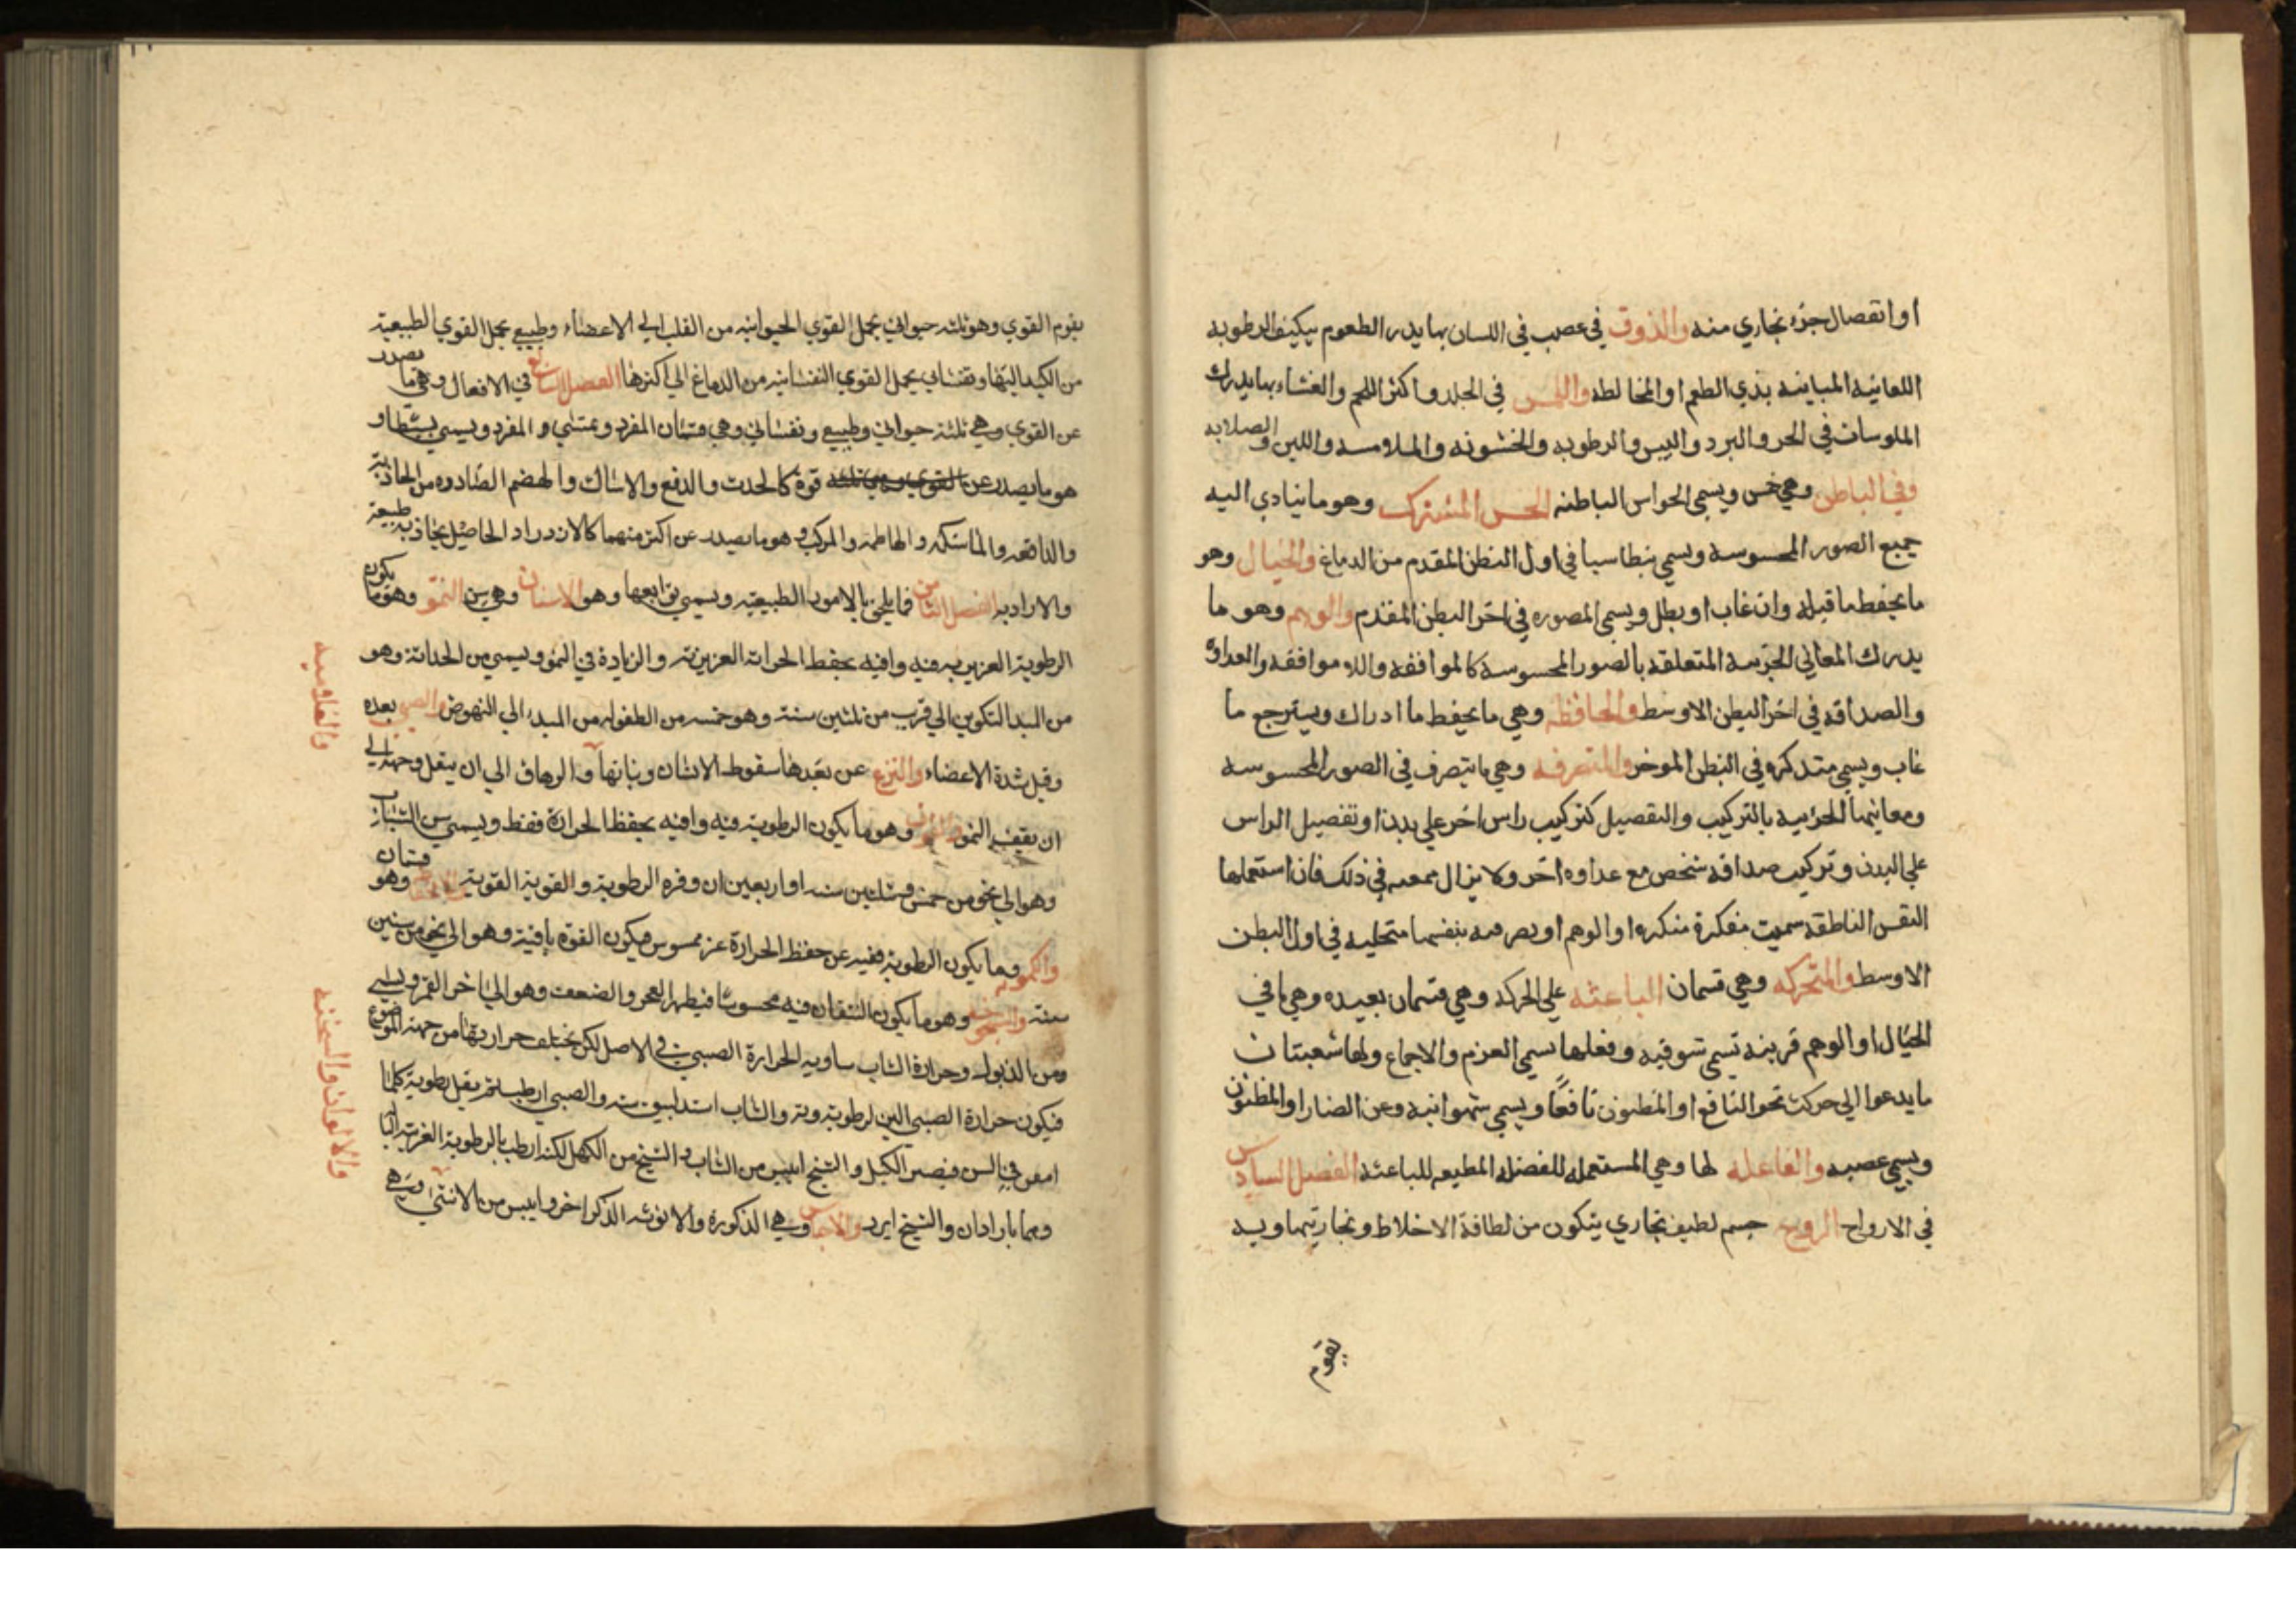 او انفصال جزء بخاري منه والذوق في عصب في اللسان بها يدرك الطعوم بتكيف الرطوبه
اللعابيه المباينه بذي الطعم او المخالطه واللمس في الجلد واكثر اللحم والغشاء بها يدرك
الملوسات في الحر والبرد واليبس والرطوبه والخشونه والملامسه واللين والصلابه
وفي الباطن وهي خمس ويسمي الحواس الباطنه الحس المشترك وهو ما يتادي اليه
جميع الصور المحسوسه ويسمي بنطاسيا في اول البطن المقدم من الدماغ والخيال وهو
ما يحفظ ما قبله وان غاب او بطل ويسمي المصوره في اخر البطن المقدم والوهم وهو ما
يدرك المعاني الجزيه المتعلقه بالصور المحسوسه كالموافقه واللا موافقه والعداوة
والصداقه في اخر البطن الاوسط والحافظه وهي ما يحفظ ما ادراك ويسترجع ما
غاب ويسمي متذكره في البطن الموخر والمتصرفه وهي ما يتصرف في الصور المحسوسه
ومعانيها الجزييه بالتركيب والتفصيل كتركيب راس اخر علي بدن او تفصيل الراس
علي البدن وتركيب صداقه شخص مع عداوه اخر ولا يزال في ذلك فان استعملها
النفس الناطقه سميت مفكرة منكره او الوهم او بنفسها متخيله في اول البطن
الاوسط والمتحركه وهي قسمان الباعثه علي الحركه وهي قسمان بعيده وهي ما في
الخيال او الوهم قريبه تسمي شوقيه وفعلها يسمي العزم والاجماع ولها شعبتان
ما يدعوا الي حركت نحو النافع او المظنون نافعا ويسمي شهوانيه وعن الضار او المظنون
ويسمي عصبيه والفاعله لها وهي المستعمله للفضله المطيعه للباعثه الفصل السادس
في الارواح الروح جسم لطيف بخاري يتكون من لطافة الاخلاط وبخاريتها وبه
يقوم
يقوم القوي وهو ثلثه حيواني يحمل القوي الحيوانيه من القلب الي الاعضاء وطبيعي يحمل القوي الطبيعيه
من الكبد اليها ونفساني يحمل القوي النفسانيه من الدماغ الي اكثرها الفصل السابع في الافعال وهي ما يصدر
عن القوي وهي ثلثة حيواني وطبيعي ونفساني وهي قسمان المفرد والمفرد ويسمي بسيطا و
هو ما يصدر عن القوي وهي ثلثه قوة كالجذب والدفع والامساك والهضم الصادره من الجاذبة
والدافعه والماسكه والهاضمه والمركب وهو ما يصدر عن اكثر منهما كالازدراد الحاصل بجاذبه طبيعة
والاراديه الفصل الثامن فيما يلحق بالامور الطبيعيه ويسمي توابعها وهو الاسنان وهي سن النمو وهو ما يكون
الرطوبة الغريزيه فيه وافيه بحفظ الحرارة الغريزية والزيادة في النمو ويسمي سن الحداثة وهو
من المبدا التكوين الي قرب من ثلثين سنة وهو خمسه سن الطفوليه من المبدء الي النهوض والصبي بعده
وقبل شدة الاعضاء والترعرع بعدها سقوط الاسنان ونباتها والرهاق الي ان يبقل وجهه الي
ان يقف النمو والوقوف وهو ما يكون الرطوبة فيه وافيه بحفظ الحرارة فقط ويسمي سن الشباب
وهو الي نحو من خمس وثلثين سنه او اربعين ان وفره الرطوبة والقوية وهو قسمان
والكهوله وما يكون الرطوبة فيه عن حفظ الحرارة غير محسوس فيكون القوة باقية وهو الي نحو من ستين
سنة والشيخوخه وهو ما يكون النقصان فيه محسوسا فيظهر العجز والضعف وهو الي اخر العمر ويسمي
وسن الذبول وحرارة الشاب مساويه لحرارة الصبي في الاصل لكن يختلف حرارتها من جهة الموضوع
فيكون حرارة الصبي الين لرطوبته والشاب اشد ليبوسته والصبي ارطب ثم يقل رطوبة كلما
امعن في السن فيصير الكهل والشيخ ايبس من الشاب والشيخ من الكهل لكنه ارطب بالرطوبة الغريبة البالة
وهما باردان والشيخ ابرد والاجناس وهي الذكورة والانوثه الذكر احر وايبس من الانثي وهي
والغلاميه
والالوان والسحنه